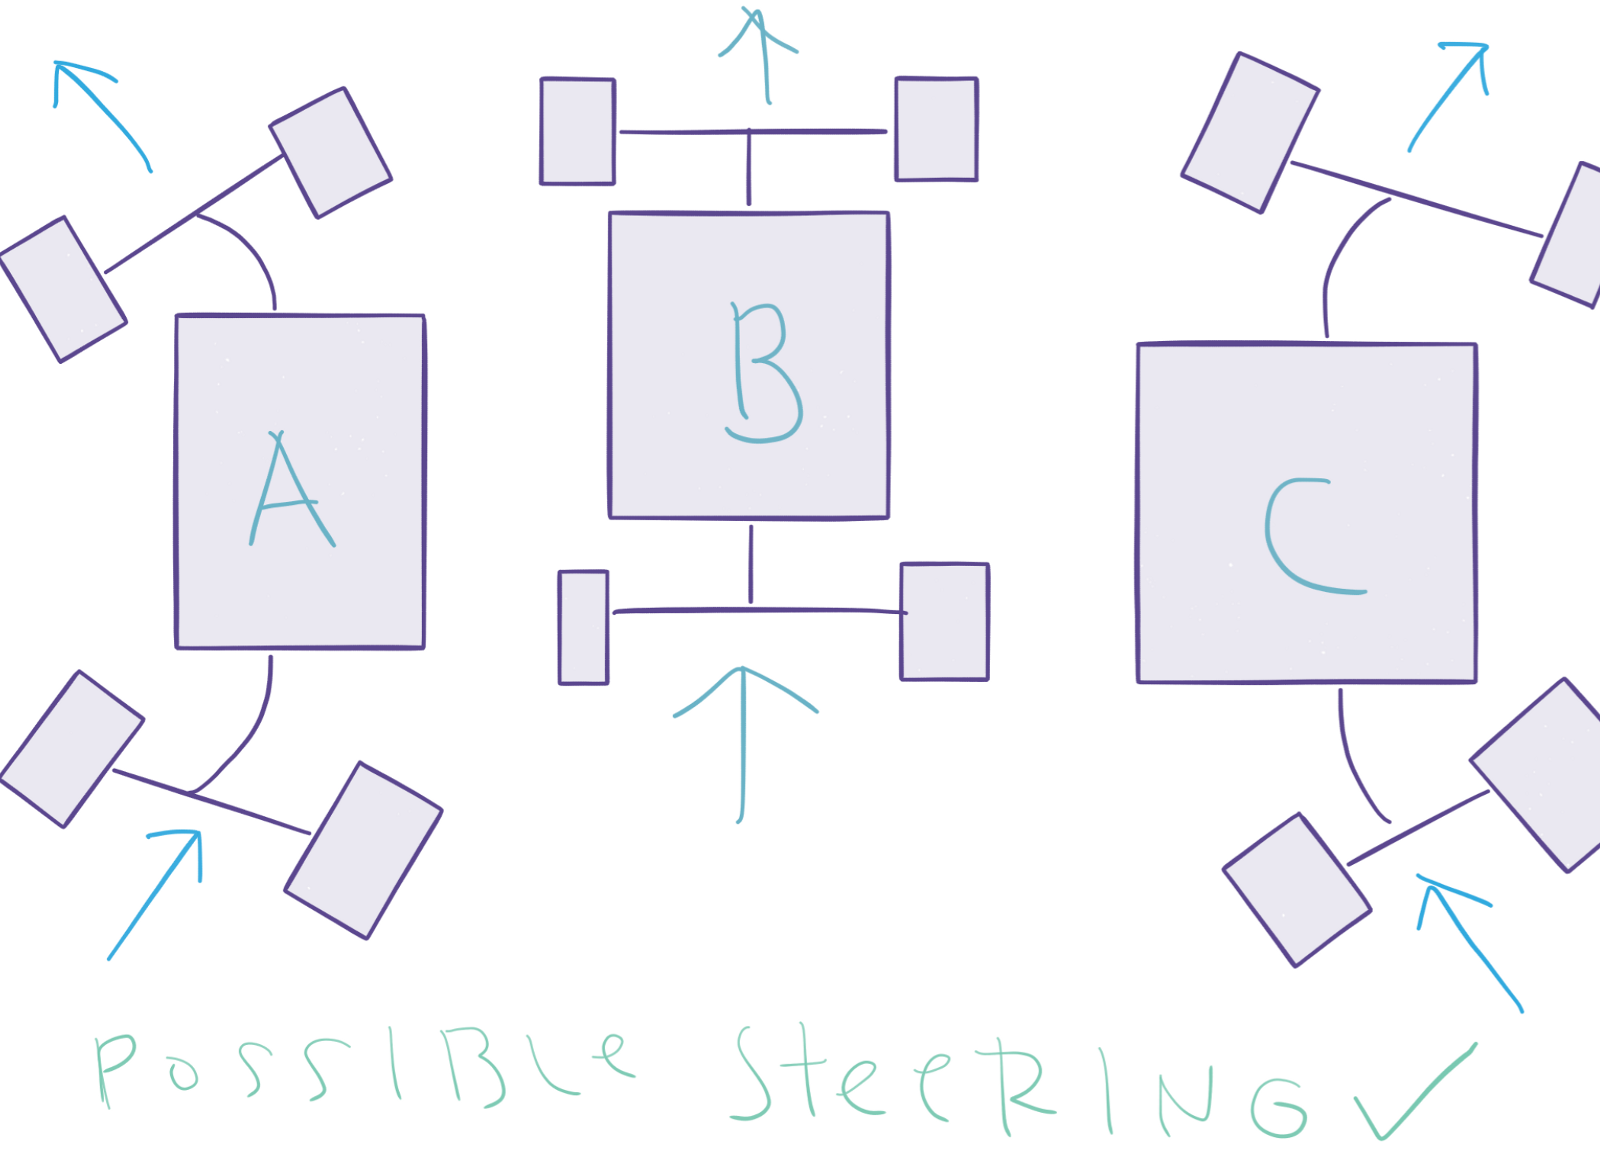 A
B
C
PoSSIBLe SteeRING